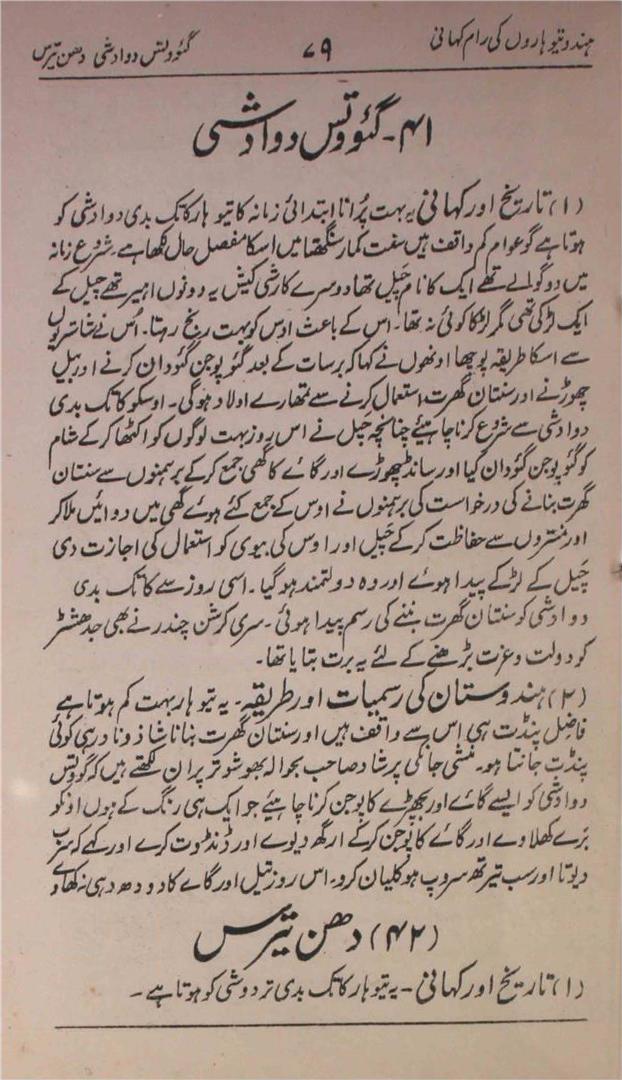 ہندو تیوہاروں کی رام کہانی
۷۹
گئووتس دوادشی دھن تیرس
۴۱- گئووتس دوادشی
(۱) تاریخ اور کہانی یہ بہت پُرانا ابتدائی زمانہ کا تیوہار کاتک بدی دوادشی کو
ہوتا ہے گو عوام کم واقف ہیں سفت کمار سنگھتا میں اسکا مفصل حال لکھا ہے شروع زمانہ
میں دو گوالے تھے ایک کا نام چَپل تھا دوسرے کا رشی کیش یہ دونوں اہیر تھے چپل کے
ایک لڑکی تھی مگر لڑکا کوئی نہ تھا۔ اس کے باعث اوس کو بہت رنج رہتا۔ اُس نے شاستریوں
سے اسکا طریقہ پوچھا اونھوں نے کہا کہ برسات کے بعد گئو پوجن گئودان کرنے اور بیل
چھوڑنے اور سنتان گھرت استعمال کرنے سے تمھارے اولاد ہوگی۔ اوسکو کاتک بدی
دوادشی سے شروع کرنا چاہیئے چنانچہ چپل نے اس روز بہت لوگوں کو اکٹھا کر کے شام
کو گئو پوجن گئودان کیا اور سانڈ چھوڑے اور گائے کا گھی جمع کر کے برہمنوں سے سنتان
گھرت بنانے کی درخواست کی برہمنوں نے اوس کے جمع کئے ہوے گھی میں دوائیں ملا کر
اور منتروں سے حفاظت کر کے چَپل اور اوس کی بیوی کو استعمال کی اجازت دی
چَپل کے لڑکے پیدا ہوے اور وہ دولتمند ہو گیا۔ اسی روز سے کاتک بدی
دوادشی کو سنتان گھرت بننے کی رسم پیدا ہوئی۔ سری کرشن چندر نے بھی جدھشٹر
کو دولت و عزت بڑھنے کے لئے یہ برت بتایا تھا۔
(۲) ہندوستان کی رسمیات اور طریقہ۔ یہ تیوہار بہت کم ہوتا ہے
فاضل پنڈت ہی اس سے واقف ہیں اور سنتان گھرت بنانا شاذ و نادر ہی کوئی
پنڈت جانتا ہو۔ منشی جانکی پرشاد صاحب بحوالہ بھوشوتر پران لکھتے ہیں کہ گووتس
دوادشی کو ایسے گائے اور بچھڑے کا پوجن کرنا چاہیئے جو ایک ہی رنگ کے ہوں اونکو
بَرے کھلاوے اور گائے کا پوجن کر کے ارگھ دیوے اور ڈنڈوت کرے اور کہے کہ سرب
دیوتا اور سب تیرتھ سروپ ہو کلیان کرو۔ اس روز تیل اور گائے کا دودھ دہی نہ کھاوے
(۴۲) دھن تیرس
(۱) تاریخ اور کہانی۔ یہ تیوہار کاتک بدی تردوشی کو ہوتا ہے۔